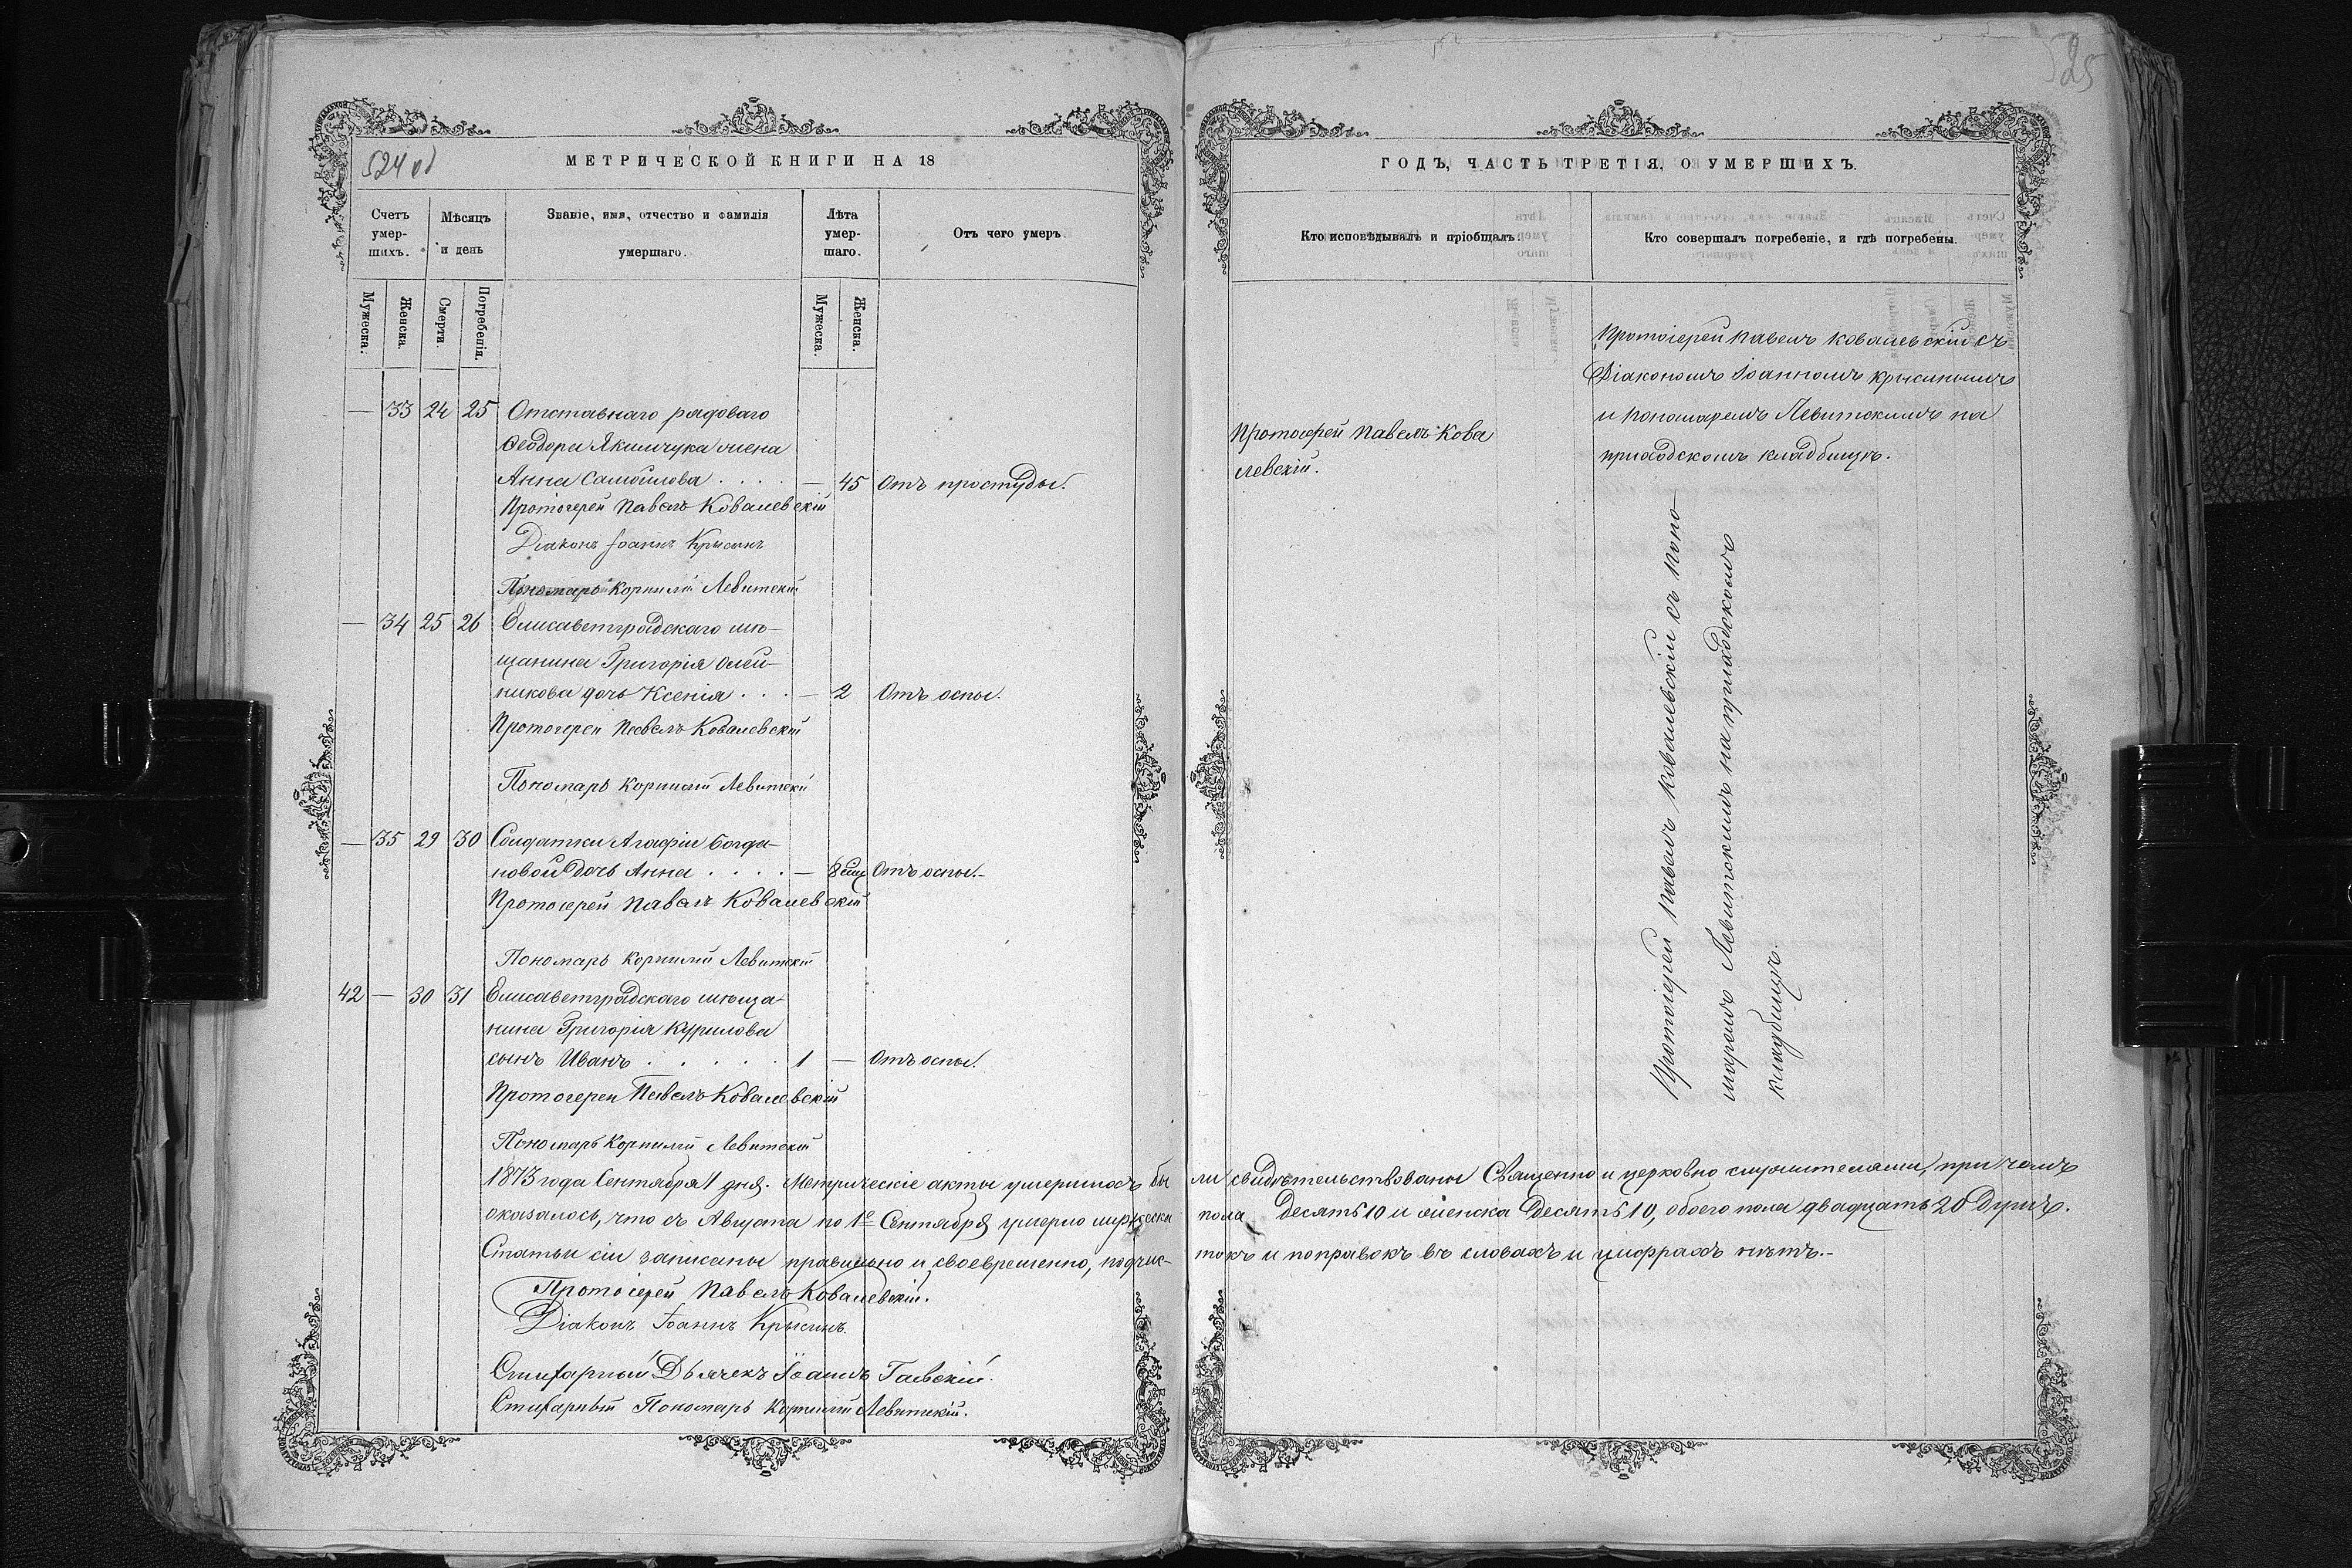 524 об
МЕТРИЧЕСКОЙ КНИГИ НА 18
Счетъ умер-шихъ.
Мѣсяцъ и день
Званіе, имя, отчество и фамилія умершаго.
Лѣта умер-шаго.
Отъ чего умеръ.
Мужеска.
Женска.
Смерти.
Погребенія.
Мужеска.
Женска.
— 33 24 25 Отставнаго рядоваго
Ѳеодора Якимчука жена
Анна Самойлова . . . . — 45 Отъ простуды.
Протоіерей Павелъ Ковалевскій
Діаконъ Іоаннъ Крысинъ
Пономарь Корнилій Левитскій
— 34 25 26 Елисаветградскаго мѣ-
щанина Григорія Олей-
никова дочь Ксенія . . . — 2 Отъ оспы.
Протоіерей Павелъ Ковалевскій
Пономарь Корнилій Левитскій
— 35 29 30 Солдатки Агафіи Богда-
новой дочь Анна . . . . — 8 Отъ оспы.-
Протоіерей Павелъ Ковалевскій
Пономарь Корнилій Левитскій
42 — 30 31 Елисаветградскаго мѣща-
нина Григорія Курилова
сынъ Иванъ . . . . . 1 — Отъ оспы.
Протоіерей Павелъ Ковалевскій
Пономарь Корнилій Левитскій
1873 года Сентября 1 дня. Метрическіе акты умершихъ бы
оказалось, что съ Августа по 1е Сентября умерло мужеска
Статьи сіи записаны правильно и своевременно, подчис-
Протоіерей Павелъ Ковалевскій.
Діаконъ Іоаннъ Крысинъ.
Стихарный Дьячекъ Іоаннъ Гаевскій.
Стихарный Пономарь Корнилій Левитскій.
525
ГОДЪ, ЧАСТЬ ТРЕТІЯ, О УМЕРШИХЪ.
Кто исповѣдывалъ и пріобщалъ.
Кто совершалъ погребеніе, и гдѣ погребены.
Протоіерей Павелъ Кова
левскій.
Протоіерей Павелъ Ковалевскій съ
Діакономъ Іоанномъ Крысинымъ
и Пономаремъ Левитскимъ на
приходскомъ кладбищѣ.
Протоіерей Павелъ Ковалевскій съ Поно-
маремъ Левитскимъ на приходскомъ
кладбищѣ.
ли свидѣтельствованы Священно и церковно служителями, при чемъ
пола десять 10 и женска десять 10, обоего пола двадцать 20 душъ.
токъ и поправокъ въ словахъ и цифрахъ нѣтъ.-